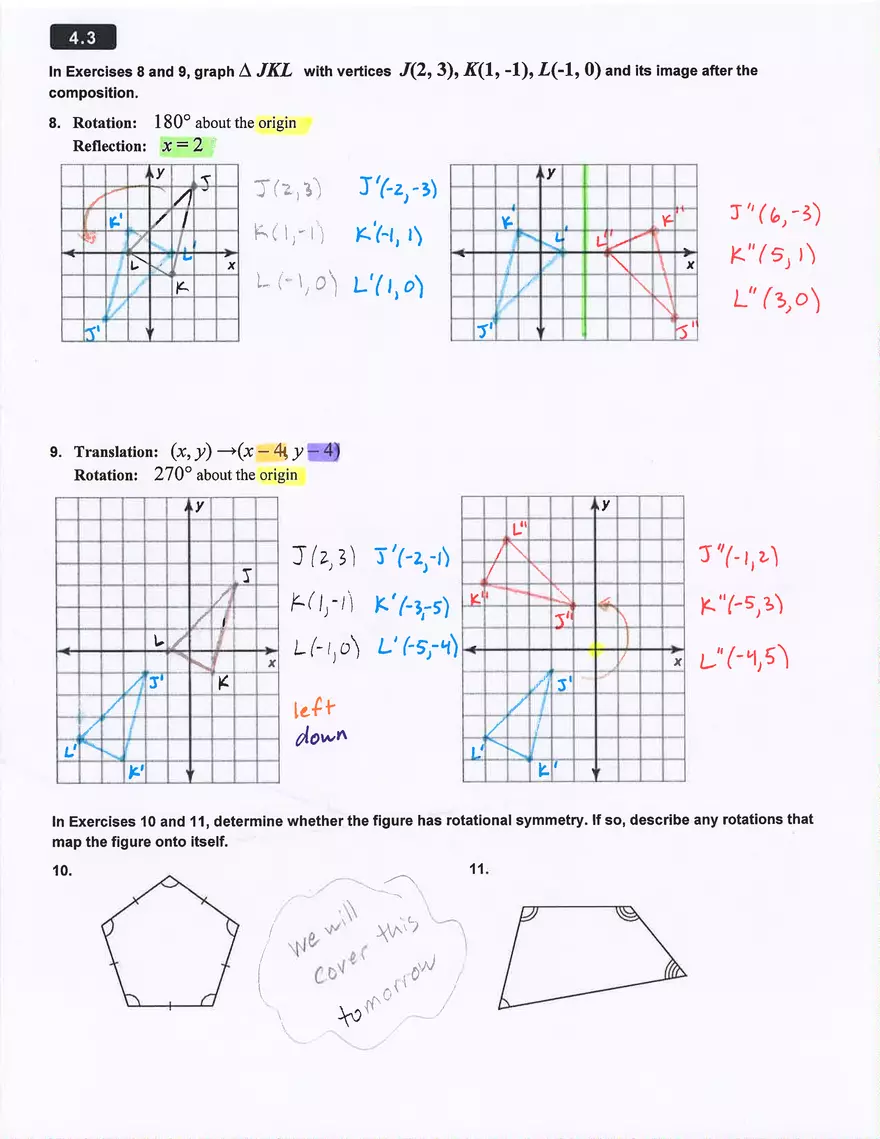 4.3
In Exercises 8 and 9, graph Δ JKL with vertices J(2, 3), K(1, -1), L(-1, 0) and its image after the
composition.
8. Rotation: 180° about the origin
Reflection: x = 2
y
J
K'
L'
L
x
K
J'
J(2,3)
K(1,-1)
L(-1,0)
J'(-2,-3)
K'(-1, 1)
L'(1,0)
y
K'
L'
L"
K"
x
J'
J"
J"(6,-3)
K"(5,1)
L"(3,0)
9. Translation: (x, y) → (x – 4, y – 4)
Rotation: 270° about the origin
y
J
L
x
K
J'
L'
K'
J(2,3)
K(1,-1)
L(-1,0)
J'(-2,-1)
K'(-3,-5)
L'(-5,-4)
left
down
y
L"
K"
J"
x
J'
L'
K'
J"(-1,2)
K"(-5,3)
L"(-4,5)
In Exercises 10 and 11, determine whether the figure has rotational symmetry. If so, describe any rotations that
map the figure onto itself.
10.
we will
cover this
tomorrow
11.